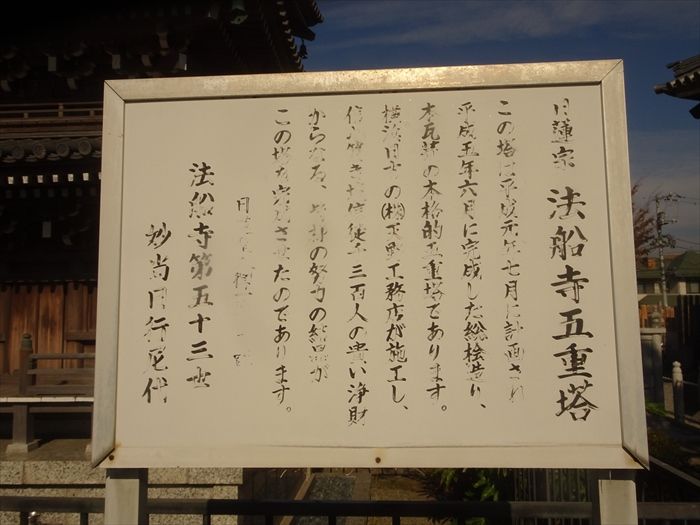 日蓮宗 法船寺五重塔
この塔は平成元年七月に計画され
平成五年六月に完成した総桧造り、
本瓦葺の本格的五重塔であります。
横浜日吉の㈱天野工務店が施工し、
信心篤き檀信徒千三百人の貴い浄財
からなる、努力の結晶が
この塔を完成させたのであります。
法船寺第五十三世
妙尚日行尼代